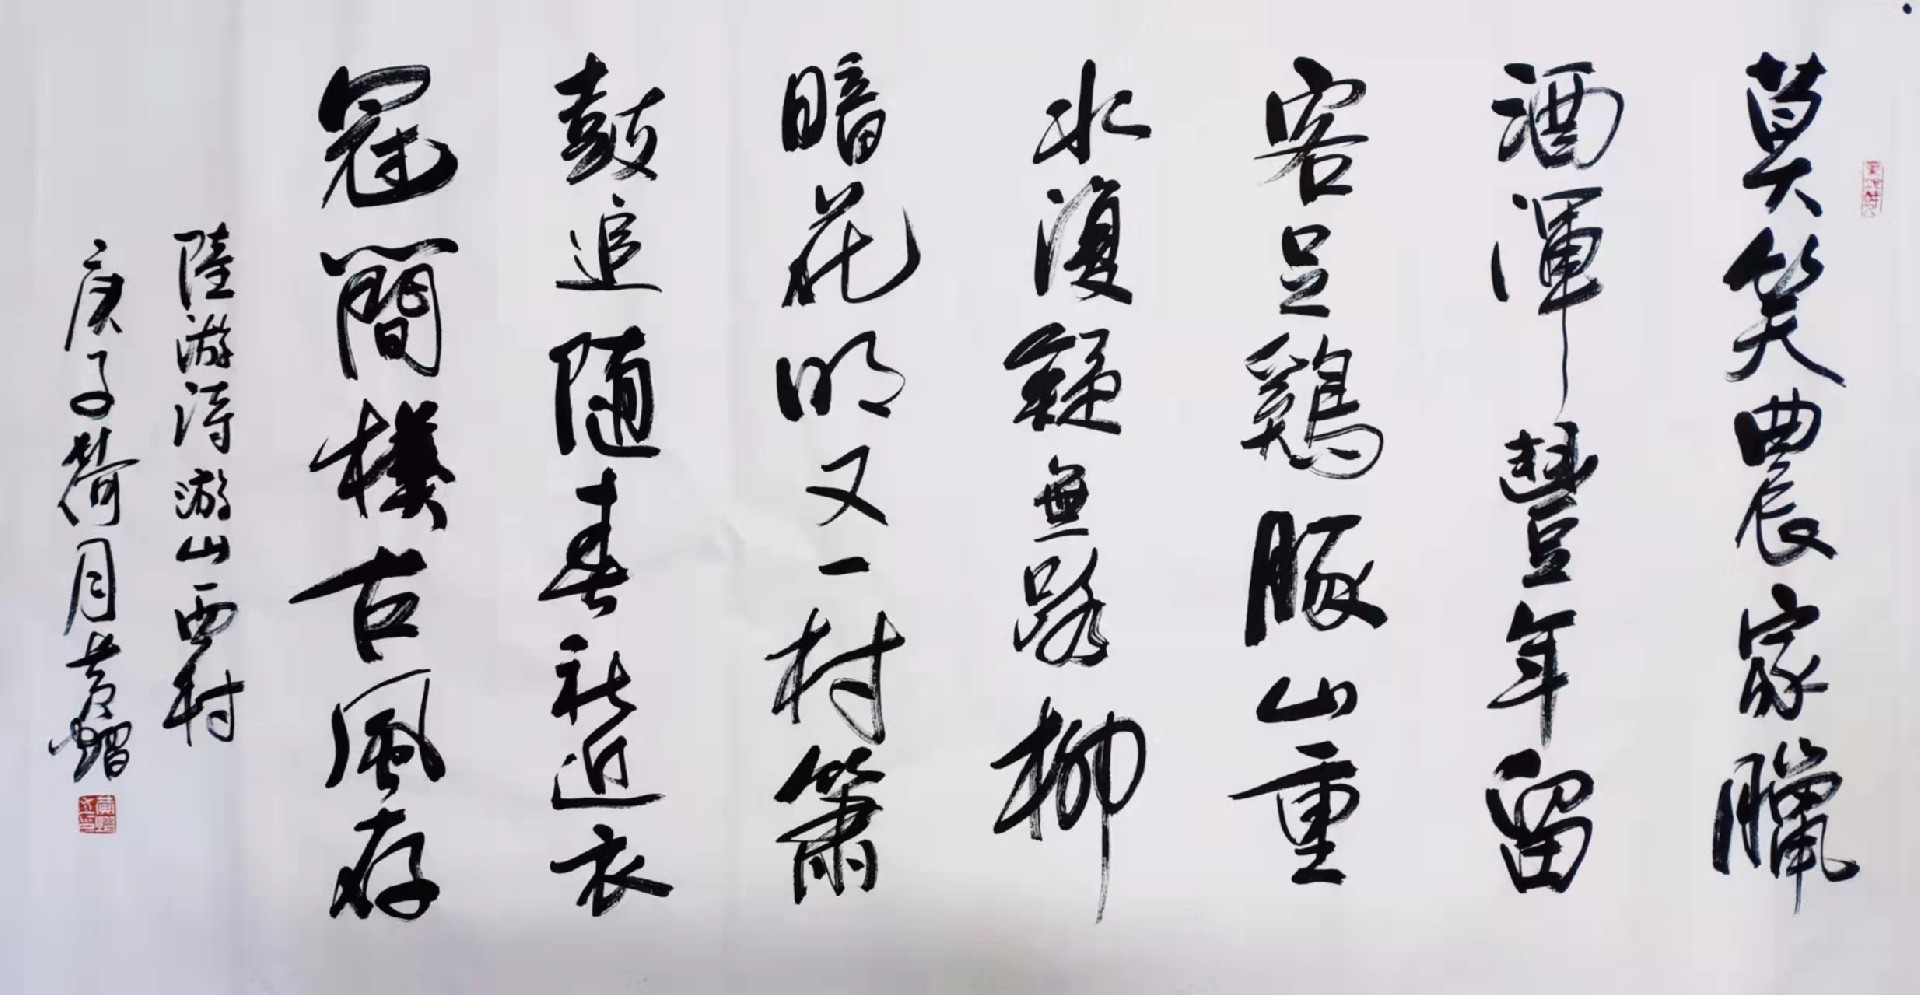 莫笑農家臘
酒渾豐年留
客足鷄豚山重
水復疑無路柳
暗花明又一村簫
鼓追隨春社近衣
冠簡樸古風存
陸游詩游山西村
庚子荷月